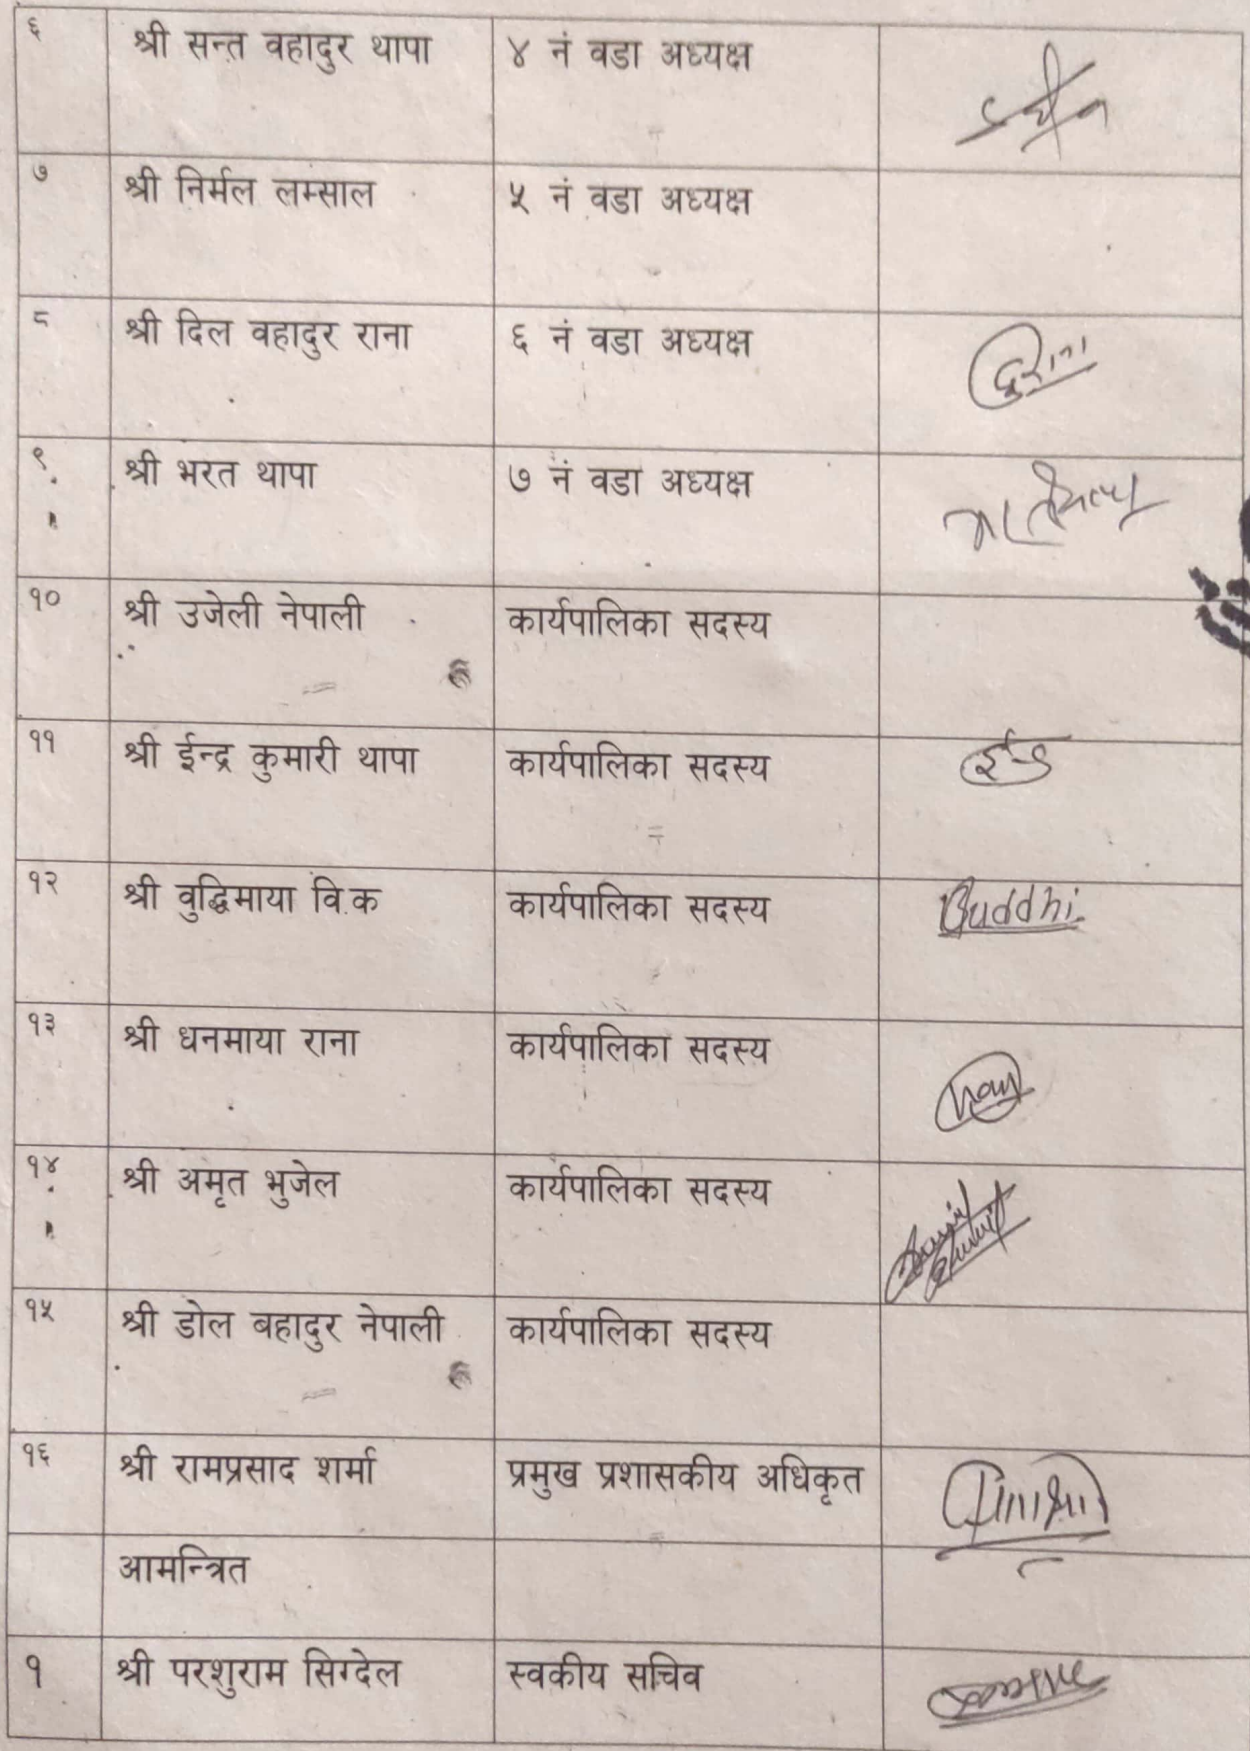 ६ श्री सन्त वहादुर थापा ४ नं वडा अध्यक्ष
७ श्री निर्मल लम्साल ५ नं वडा अध्यक्ष
८ श्री दिल वहादुर राना ६ नं वडा अध्यक्ष
९ श्री भरत थापा ७ नं वडा अध्यक्ष
१० श्री उजेली नेपाली कार्यपालिका सदस्य
११ श्री ईन्द्र कुमारी थापा कार्यपालिका सदस्य
१२ श्री वुद्धिमाया वि.क कार्यपालिका सदस्य Buddhi.
१३ श्री धनमाया राना कार्यपालिका सदस्य
१४ श्री अमृत भुजेल कार्यपालिका सदस्य
१५ श्री डोल बहादुर नेपाली कार्यपालिका सदस्य
१६ श्री रामप्रसाद शर्मा प्रमुख प्रशासकीय अधिकृत
आमन्त्रित
१ श्री परशुराम सिग्देल स्वकीय सचिव